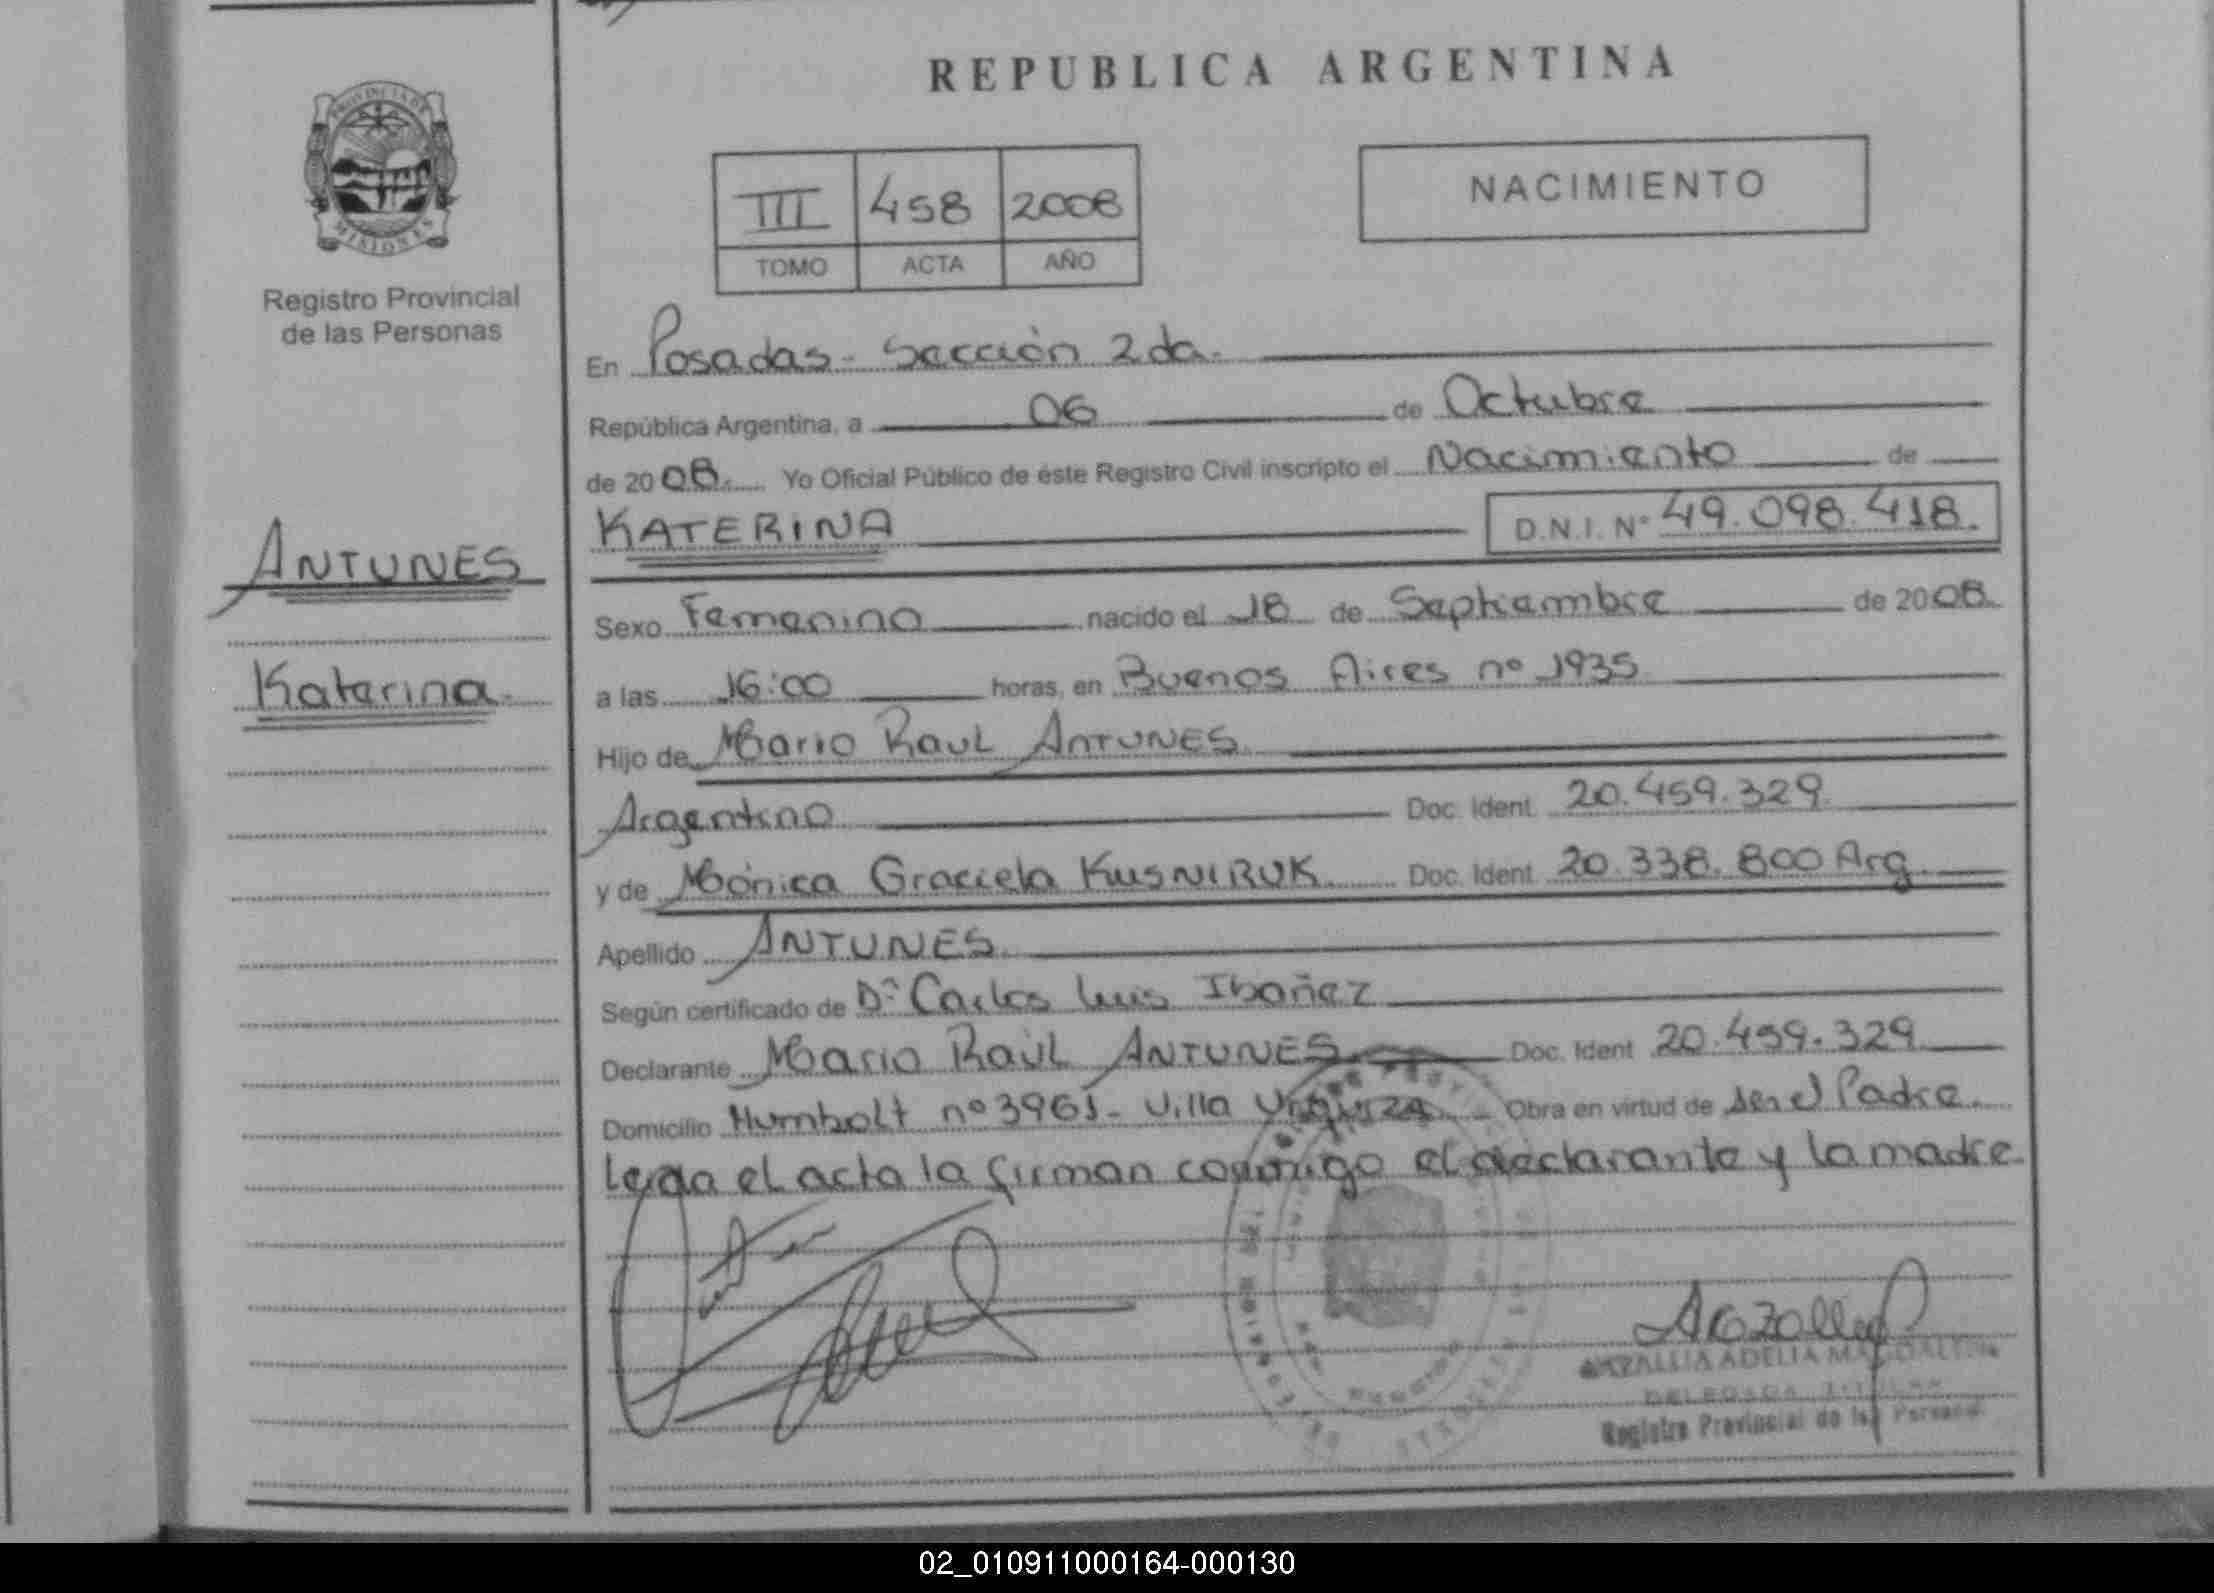 REPUBLICA ARGENTINA
PROVINCIA DE
MISIONES
Registro Provincial
de las Personas
III 458 2008
TOMO ACTA AÑO
NACIMIENTO
En Posadas - Sección 2da.
República Argentina, a 06 de Octubre
de 2008. Yo Oficial Público de éste Registro Civil inscripto el Nacimiento de
KATERINA D.N.I. Nº 49.098.418.
ANTUNES
Katerina.
Sexo Femenino nacido el 18 de Septiembre de 2008.
a las 16:00 horas, en Buenos Aires nº 1935
Hijo de Mario Raul ANTUNES
Argentino Doc. Ident. 20.459.329
y de Mónica Graciela KUSNIRUK. Doc. Ident. 20.338.800 Arg.
Apellido ANTUNES
Según certificado de Dr. Carlos Luis Ibañez
Declarante Mario Raúl ANTUNES Doc. Ident 20.459.329
Domicilio Humbolt nº 3961 - Villa Urquiza Obra en virtud de ser el Padre.
Leida el acta la firman conmigo el declarante y la madre
ADELIA MAGDALENA
DELEGADA TITULAR
Registro Provincial de las Personas
02_010911000164-000130